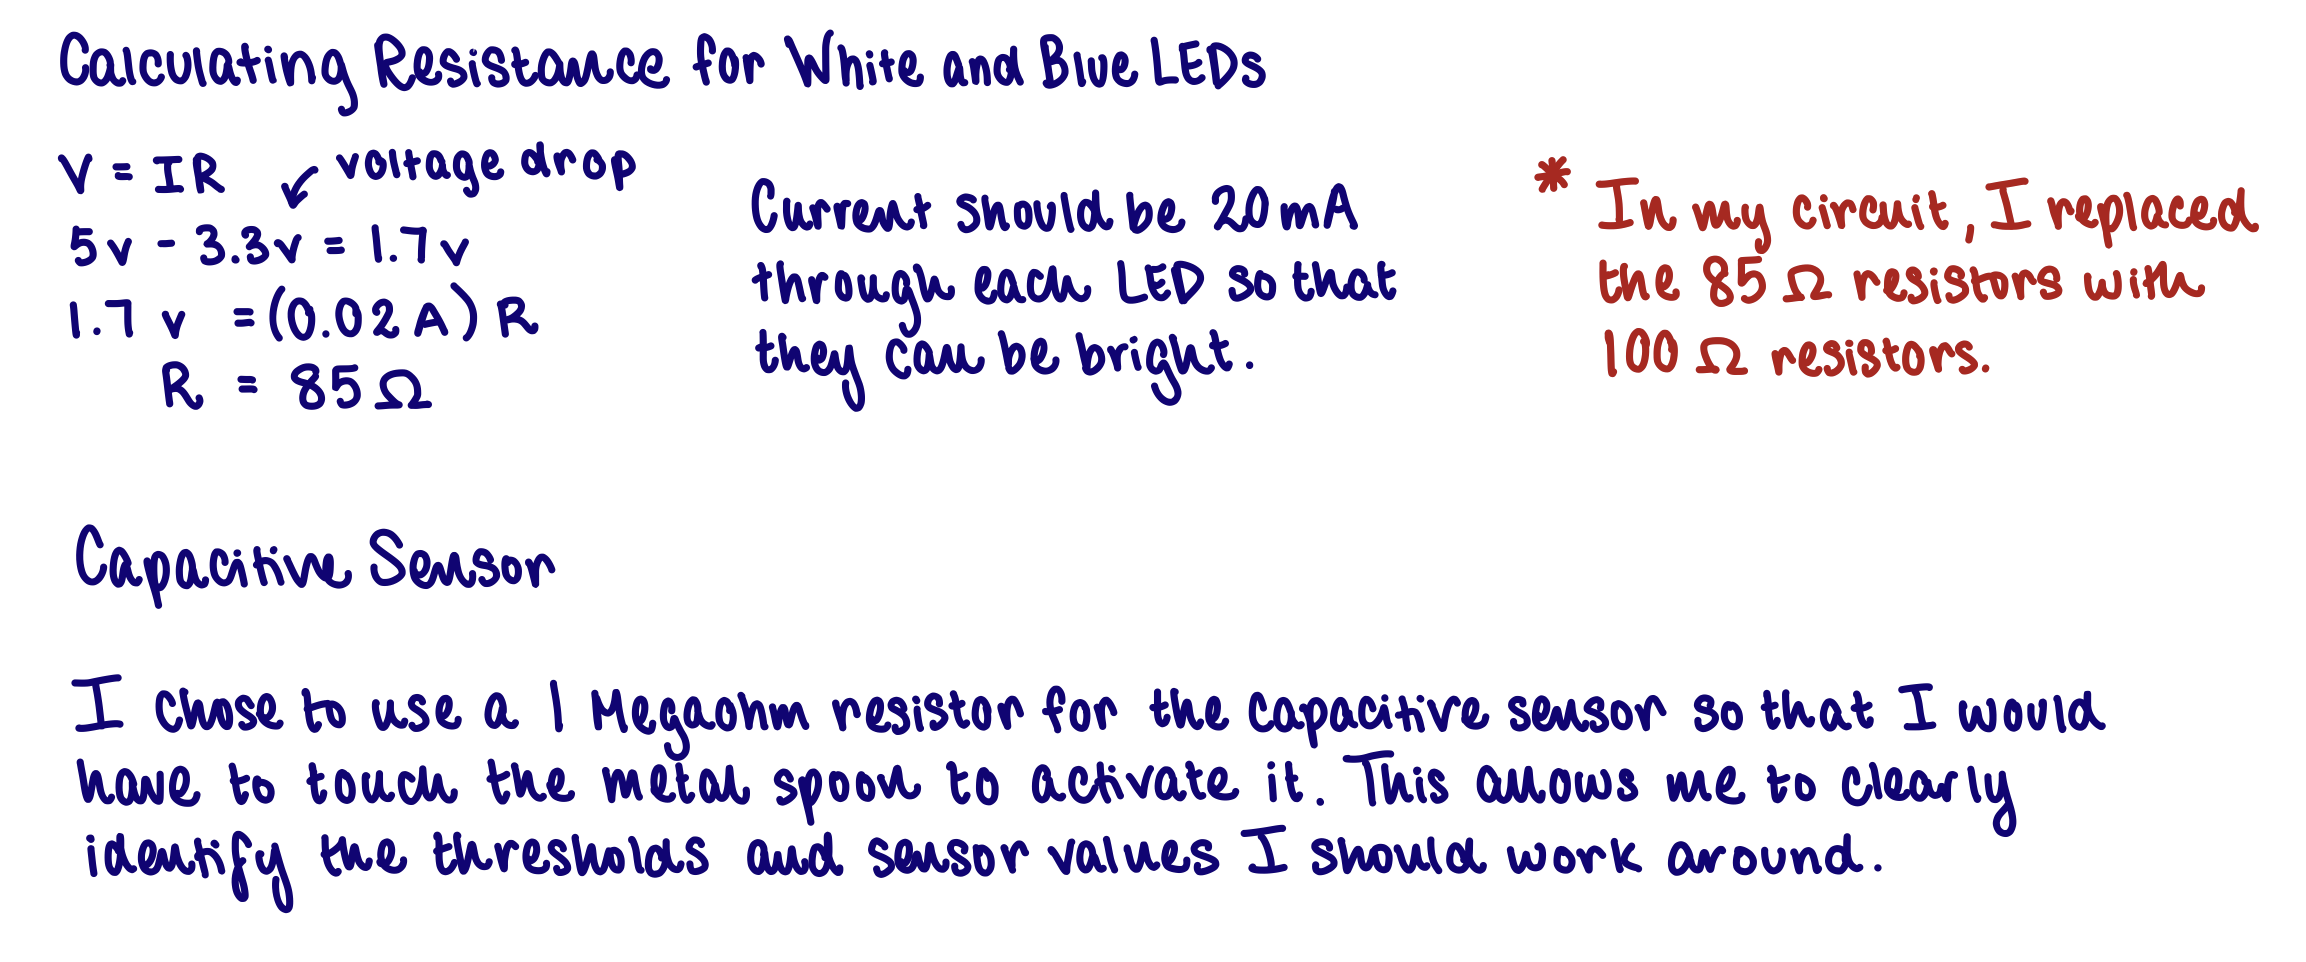 Calculating Resistance for White and Blue LEDs
V = IR
voltage drop
5v - 3.3v = 1.7v
1.7 v = (0.02 A) R
R = 85 Ω
Current should be 20mA
through each LED so that
they can be bright.
* In my circuit, I replaced
the 85 Ω resistors with
100 Ω resistors.
Capacitive Sensor
I chose to use a 1 Megaohm resistor for the capacitive sensor so that I would
have to touch the metal spoon to activate it. This allows me to clearly
identify the thresholds and sensor values I should work around.